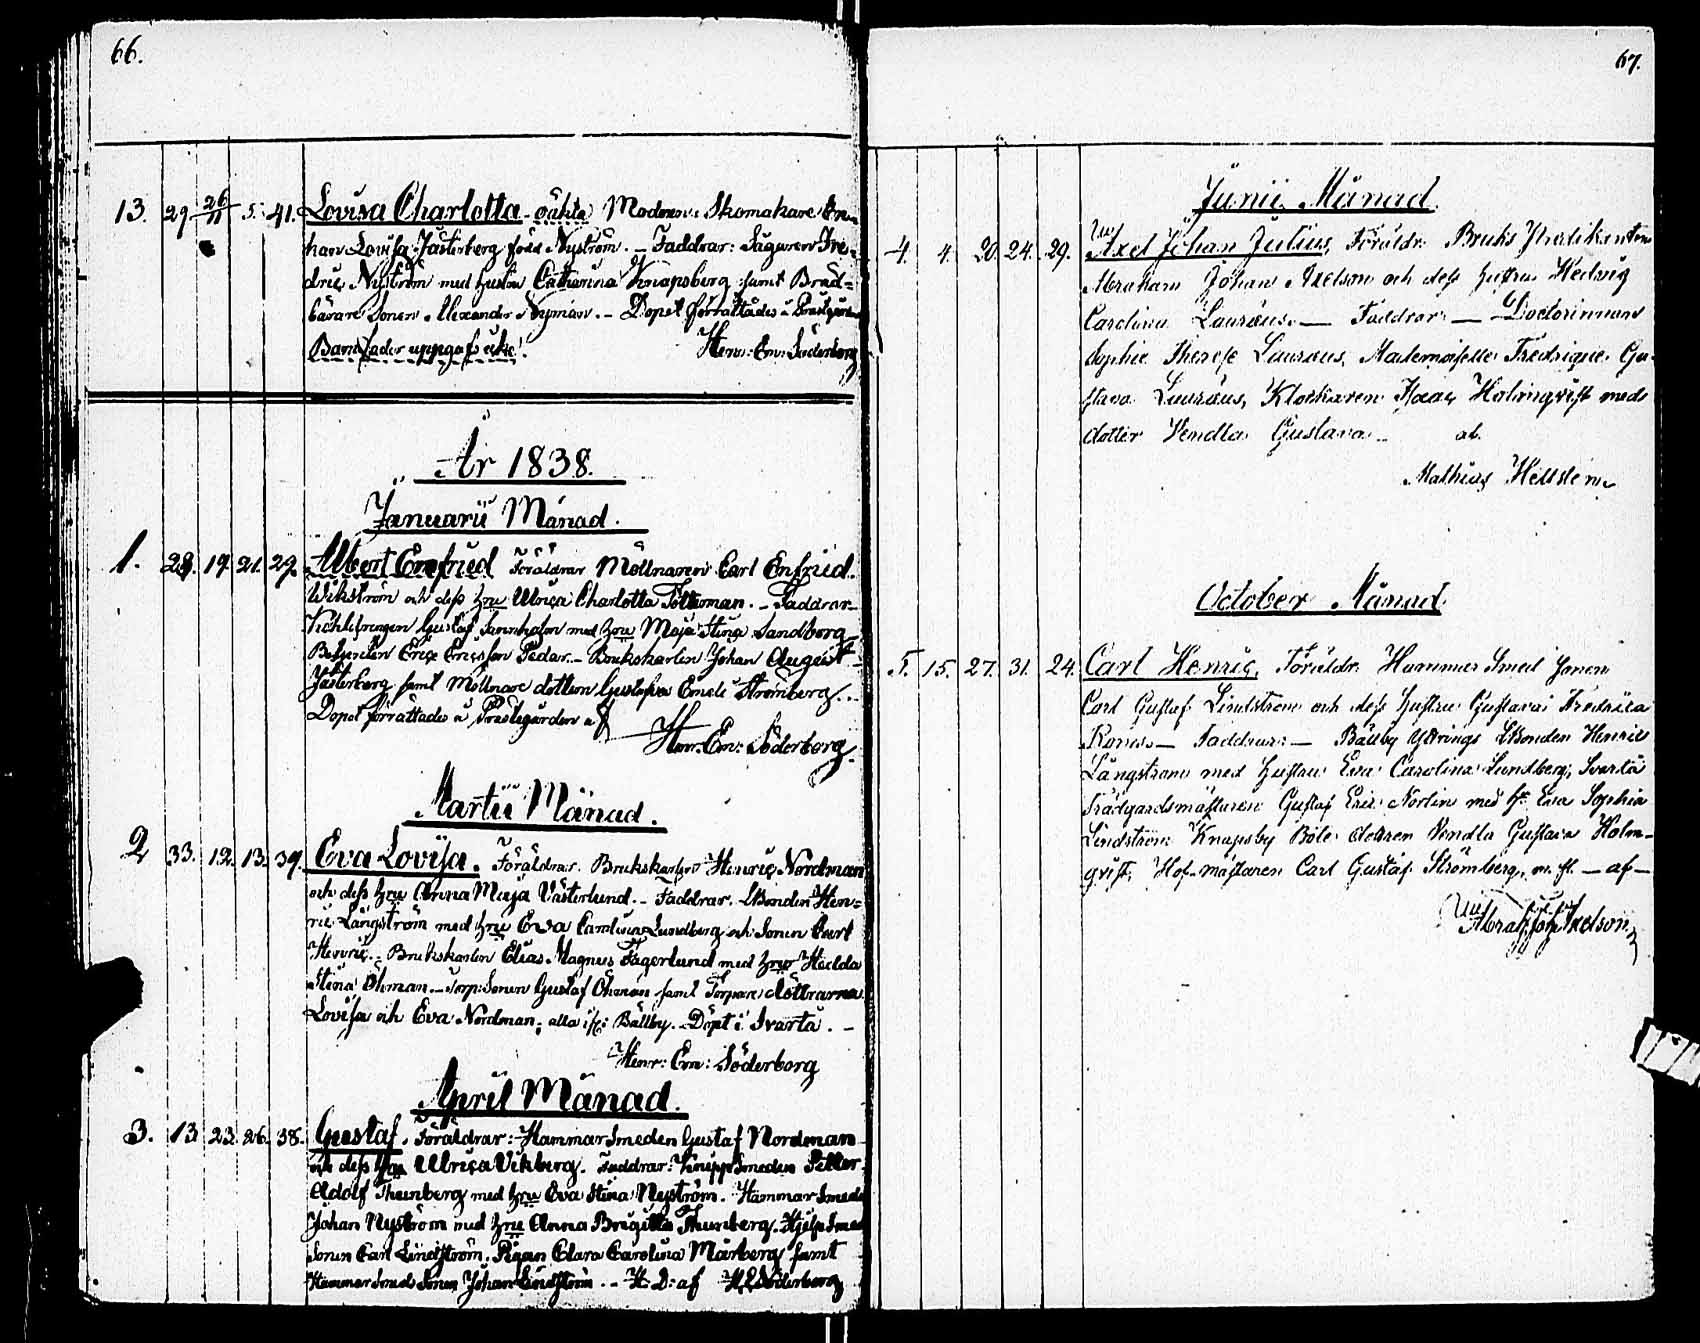 66.
13. 29 26/11 5. 41. Lovisa Charlotta oäkta Modren: Skomakare En-
kan Lovisa Jästerberg född Nyström. - Faddrar: Sågaren Fre-
dric Nyström med hustru Catharina Knapsberg samt Bräd-
bärare Sonen Alexander Nyman. - Dopet förrättades å Prästgården
Barnfader uppgafs icke! Henr: Em: Söderborg
År 1838.
Januarii Månad.
1. 28. 19. 21. 29. Albert Emfried Föräldrar Möllnaren Carl Enfried
Wikström och dess hru Ulrica Charlotta Fötterman. - Faddrar
Gustaf med hru Maja Stina Sandborg
Eric Ericsson Pedar. - Brukskarlen Johan August
Jästerberg samt Möllnare dottern Gustafva Emeli Strömberg.
Dopet förrättades å Prästegården af
Henr: Em: Söderborg.
Martii Månad.
2 33. 12. 13. 39. Eva Lovisa. Föräldrar. Brukskarlen Henric Nordman
och dess hru Anna Maja Västerlund. - Faddrar. Bonden Hen-
ric Långström med hru Eva Carolina Lundberg och Sonen Carl
Henric. - Brukskarlen Elias Magnus Fagerlund med hru Hedda
Stina Öhman. - Torp: Sonen Gustaf Öhman samt Torpare döttrarna
Lovisa och Eva Nordman; alla i Bällby. Döpt i Svarta. -
Henr: Em: Söderborg
April Månad.
3. 13. 23. 26. 38. Gustaf. Föräldrar: Hammar Smeden Gustaf Nordman
och dess hru Ulrica Vikberg. Faddrar: Knipp Smeden Petter
Adolf Thunberg med hru Eva Stina Nyström. Hammar Smeden
Johan Nyström med hru Anna Brigitta Thunberg. Hjelp Smed
Sonen Carl Lindström. Pigan Clara Carolina Mårberg samt
Hammar Smed Sonen Johan Lindström. - H. D. af H. E. Söderborg
67.
Junii Månad.
4. 4. 20. 24. 29. Axel Johan Julius, Föräldr: Bruks Predikanten
Abraham Johan Axelson och dess hustru Hedvig
Carolina Lauræus. — Faddrar: — Doctorinnan
Sophie Therese Lauræus, Mademoiselle Fredrique Gu-
stava Lauræus, Klockaren Isaac Holmqvist med
dotter Vendla Gustava. - af.
Mathias Hellsten
October Månad.
5. 15. 27. 31. 24. Carl Henric, Föräldr: Hammar Smed Sonen
Carl Gustaf Lindström och dess Hustru Gustava Fredrica
— Faddrar: — Bällby Bonden Henric
Långström med hustru Eva Carolina Lundberg, Svartå
Trädgårdsmästaren Gustaf Eric Norlin med h. Eva Sophia
Lindström Knapsby Böle dottren Vendla Gustava Holm-
qvist, Hof-mästaren Carl Gustaf Strömberg, m. fl. — af —
Abrah: Joh: Axelson